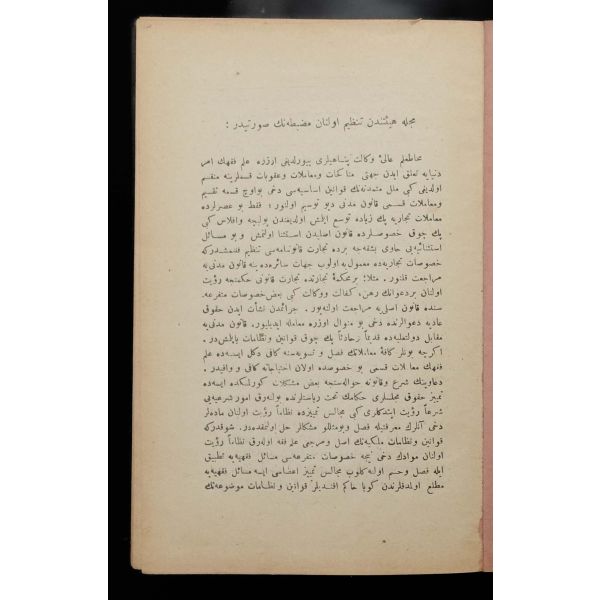 مجله هيئتندن تنظيم اولنان مضبطه‌نك صورتيدر :
محاطعلم عالئ وكالت پناهيلرى بيورلديغى اوزره علم فقهك امر
دنيايه تعلق ايدن جهتى مناكحات ومعاملات وعقوبات قسملرينه منقسم
اولديغى كبى ملل متمدنه‌نك قوانين اساسيه‌سى دخى بو اوچ قسمه تقسيم
ومعاملات قسمى قانون مدنى ديو توسيم اولنور ؛ فقط بو عصرلرده
معاملات تجاريه پك زياده توسع ايلمش اولديغندن پوليچه وافلاس كبى
پك چوق خصوصلرده قانون اصليدن استثنا اولنمش و بو مسائل
استثنائيه‌يى حاوى بشقه‌جه برده تجارت قانوننامه‌سى تنظيم قلنمشدركه
خصوصات تجاريه‌ده معمول‌به اولوب جهات سائره‌ده ينه قانون مدنى‌يه
مراجعت قلنور . مثلا بر محكمهٔ تجارتده تجارت قانونى حكمنجه رؤيت
اولنان بر دعوانك رهن، كفالت ووكالت كبى بعض خصوصات متفرعه
سنده قانون اصلى‌يه مراجعت اولنه‌يور . جرائمدن نشأت ايدن حقوق
عاديه دعوالرنده دخى بو منوال اوزره معامله ايديليور. قانون مدنى‌يه
مقابل دولتعليه‌ده قديماً وحادثاً پك چوق قوانين ونظامات ياپلمش‌در .
اكرچه بونلر كافهٔ معاملاتك فصل و تسويه‌سنه كافى دكل ايسه‌ده علم
فقهك معاملات قسمى بو خصوصده اولان احتياجاته كافى و وافيدر .
دعاوينك شرع وقانونه حواله‌سنجه بعض مشكلات كورلمكده ايسه‌ده
تمييز حقوق مجلسلرى حكامك تحت رياستلرنده بولنه‌رق امور شرعيه‌يى
شرعاً رؤيت ايتدكلرى كبى مجالس تمييزده نظاماً رؤيت اولنان ماده‌لر
دخى آنلرك معرفتيله فصل وبومثللو مشكللر حل اولنمقده‌در. شوقدركه
قوانين ونظامات ملكيه‌نك اصل ومرجعى علم فقه اوله‌رق نظاماً رؤيت
اولنان موادك دخى نيجه خصوصات متفرعه‌سى مسائل فقهيه‌يه تطبيق
ايله فصل وحسم اولنه‌كلوب مجالس تمييز اعضاسى ايسه مسائل فقهيه‌يه
مطلع اولمدقلرندن كويا حاكم افنديلر قوانين و نظامات موضوعه‌نك